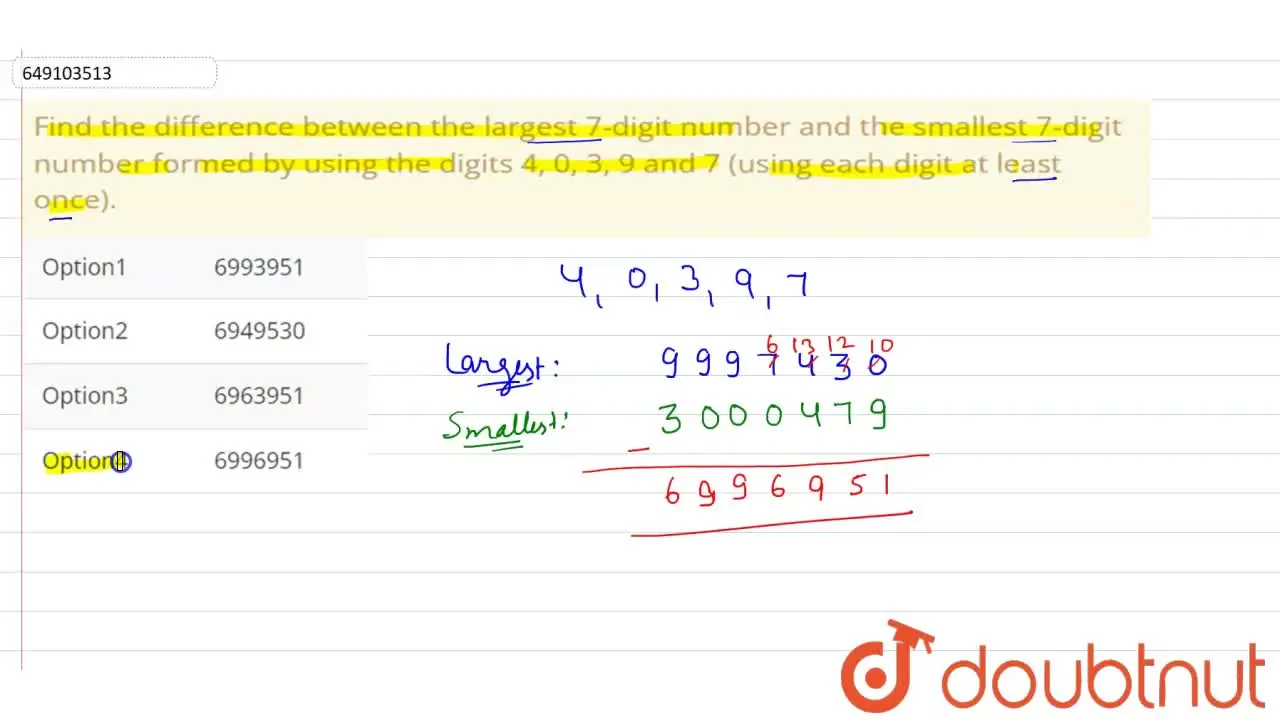 649103513
Find the difference between the largest 7-digit number and the smallest 7-digit
number formed by using the digits 4, 0, 3, 9 and 7 (using each digit at least
once).
Option1 6993951
Option2 6949530
Option3 6963951
Option4 6996951
4, 0, 3, 9, 7
6 13 12 10
Largest: 9 9 9 7 4 3 0
Smallest: 3 0 0 0 4 7 9
–
6 9 9 6 9 5 1
doubtnut